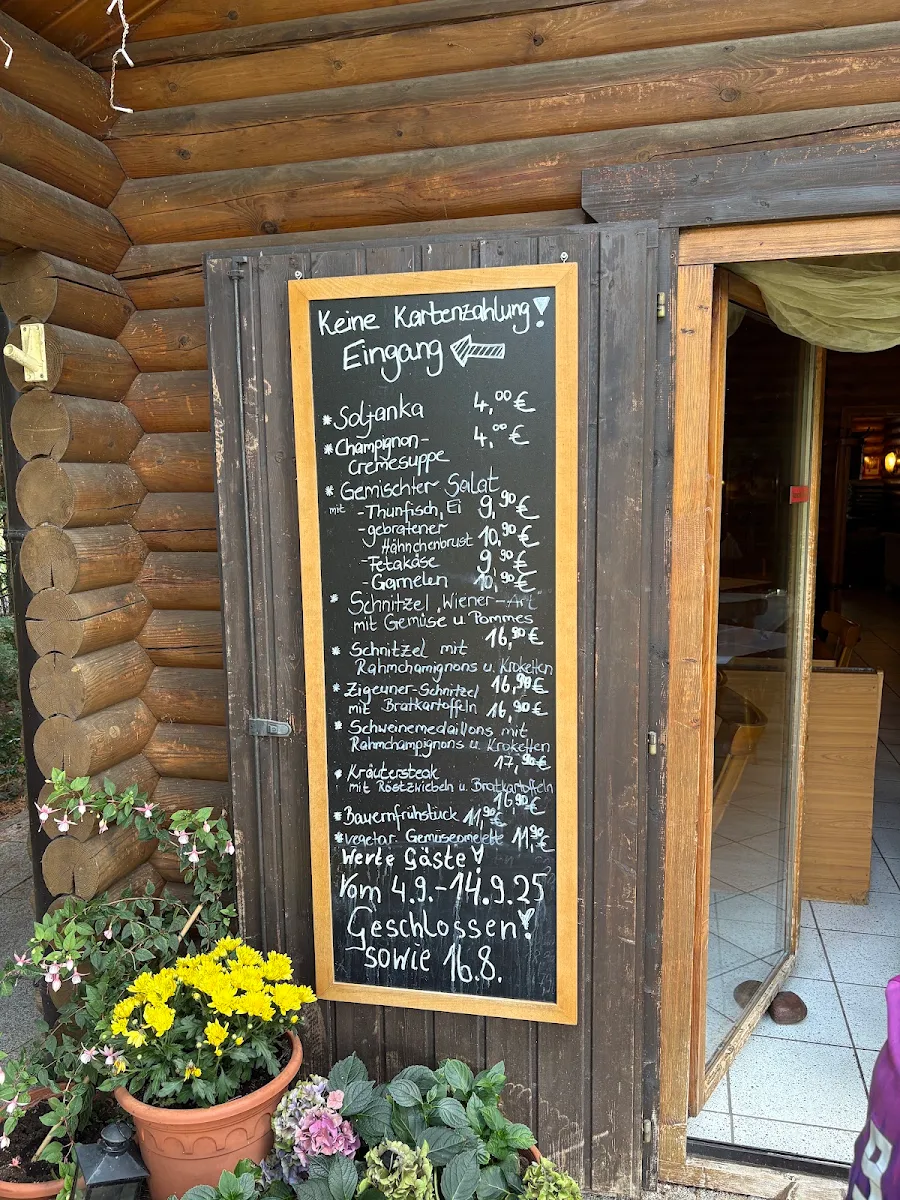 Keine Kartenzahlung!
Eingang
* Soljanka 4,00 €
* Champignon- 4,00 €
Cremesuppe
* Gemischter Salat
mit - Thunfisch, Ei 9,90 €
- gebratener 10,90 €
Hähnchenbrust
- Fetakäse 9,90 €
- Garnelen 10,90 €
* Schnitzel "Wiener-Art"
mit Gemüse u. Pommes
16,90 €
* Schnitzel mit
Rahmchamignons u. Kroketten
16,90 €
* Zigeuner-Schnitzel
mit Bratkartoffeln 16,90 €
* Schweinemedaillons mit
Rahmchampignons u. Kroketten
17,90 €
* Kräutersteak
mit Röstzwiebeln u. Bratkartoffeln
16,90 €
* Bauernfrühstück 11,90 €
* vegetar. Gemüseomelette 11,90 €
Werte Gäste!
Vom 4.9.-14.9.25
Geschlossen!
sowie 16.8.